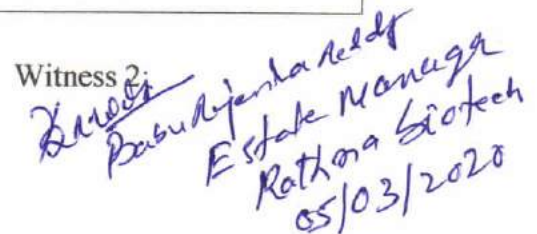 Witness 2:
Babu Rajendra Reddy
Estate Manager
Rathna Biotech
05/03/2020